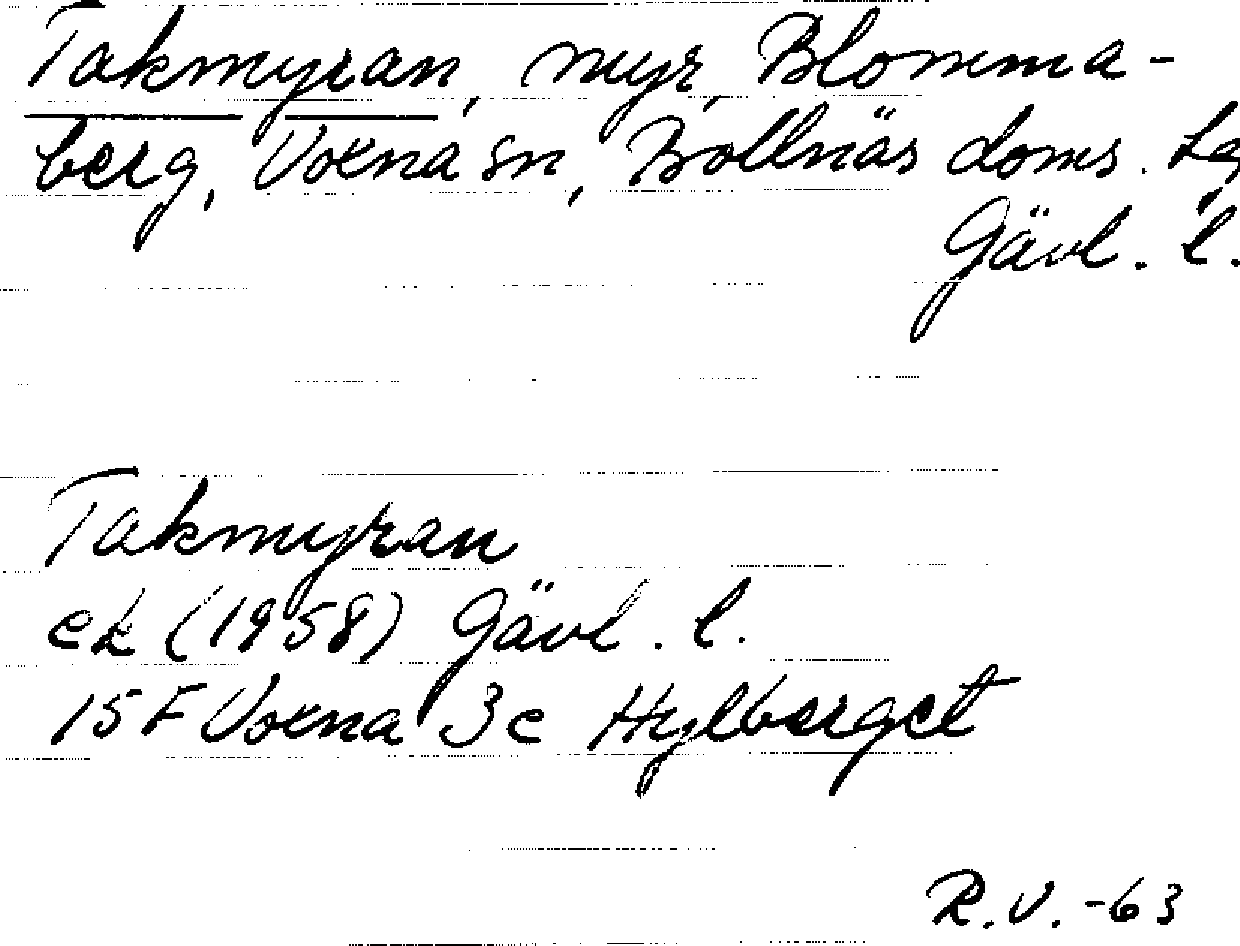 Takmyran, myr, Blomma-
berg, Voxna sn, Bollnäs doms. lg,
Gävl. l.
Takmyran
ek (1958) Gävl. l.
15F Voxna 3c Hylberget
R.V. -63